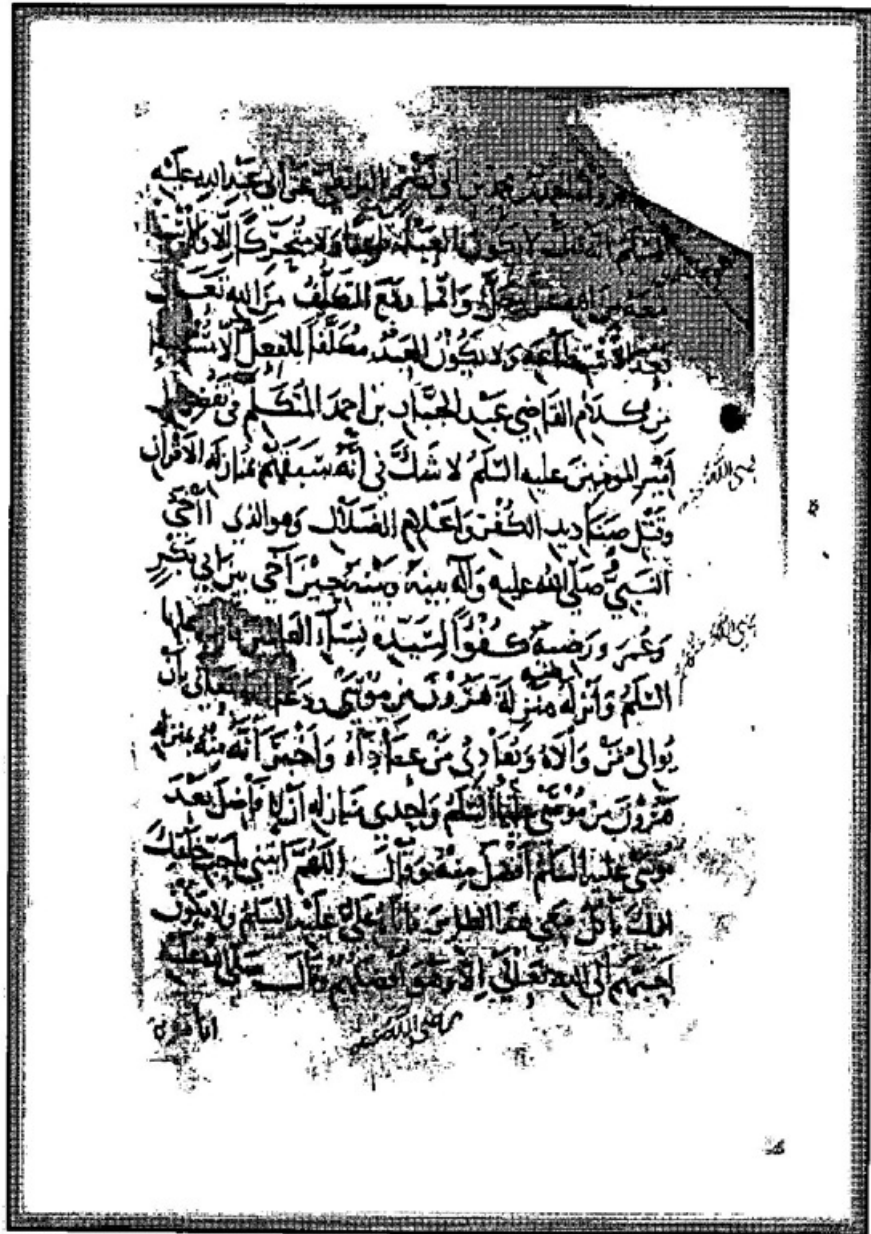 محمد بن ابي نصر عن ابي عبد الله عليه
السلم انه قال لا يكون العبد ولا متحركا الا والاستطاعة
معه من الله عز وجل وانما وقع التكليف من الله تعالى
بعد الاستطاعة ولا يكون العبد مكلفا للفعل الا مستطيعا
من كلام القاضي عبد الجبار بن احمد المتكلم في تفضيل
امير المومنين عليه السلم لا شك في انه سبقهم بمنازله الاقران
وقتل صناديد الكفر واعلام الضلال وهو الذي اآخى
النبي صلى الله عليه وآله بينه وبينه حين آخى بين ابي بكر
وعمر ورضيه كفوا لسيده نسآء العالمين عليها
السلم وانزله منزلة هرون من موسى ودعا الله تعالى بان
يوالي من والاه ويعادي من عاداه واخبر انه منه بمنزله
هرون من موسى عليهما السلم واحدى منازله ان لا فاضل بعد
موسى عليه السلم افضل منه وقال اللهم ائتني باحب خلقك
اليك ياكل معي هذا الطاير فاتاه علي عليه السلم ولا يكون
احبهم الى الله تعالى الا وهو افضلهم وقال صلى الله عليه
رضي الله عنه
رضي الله عنهم
رضي الله عنه
انا